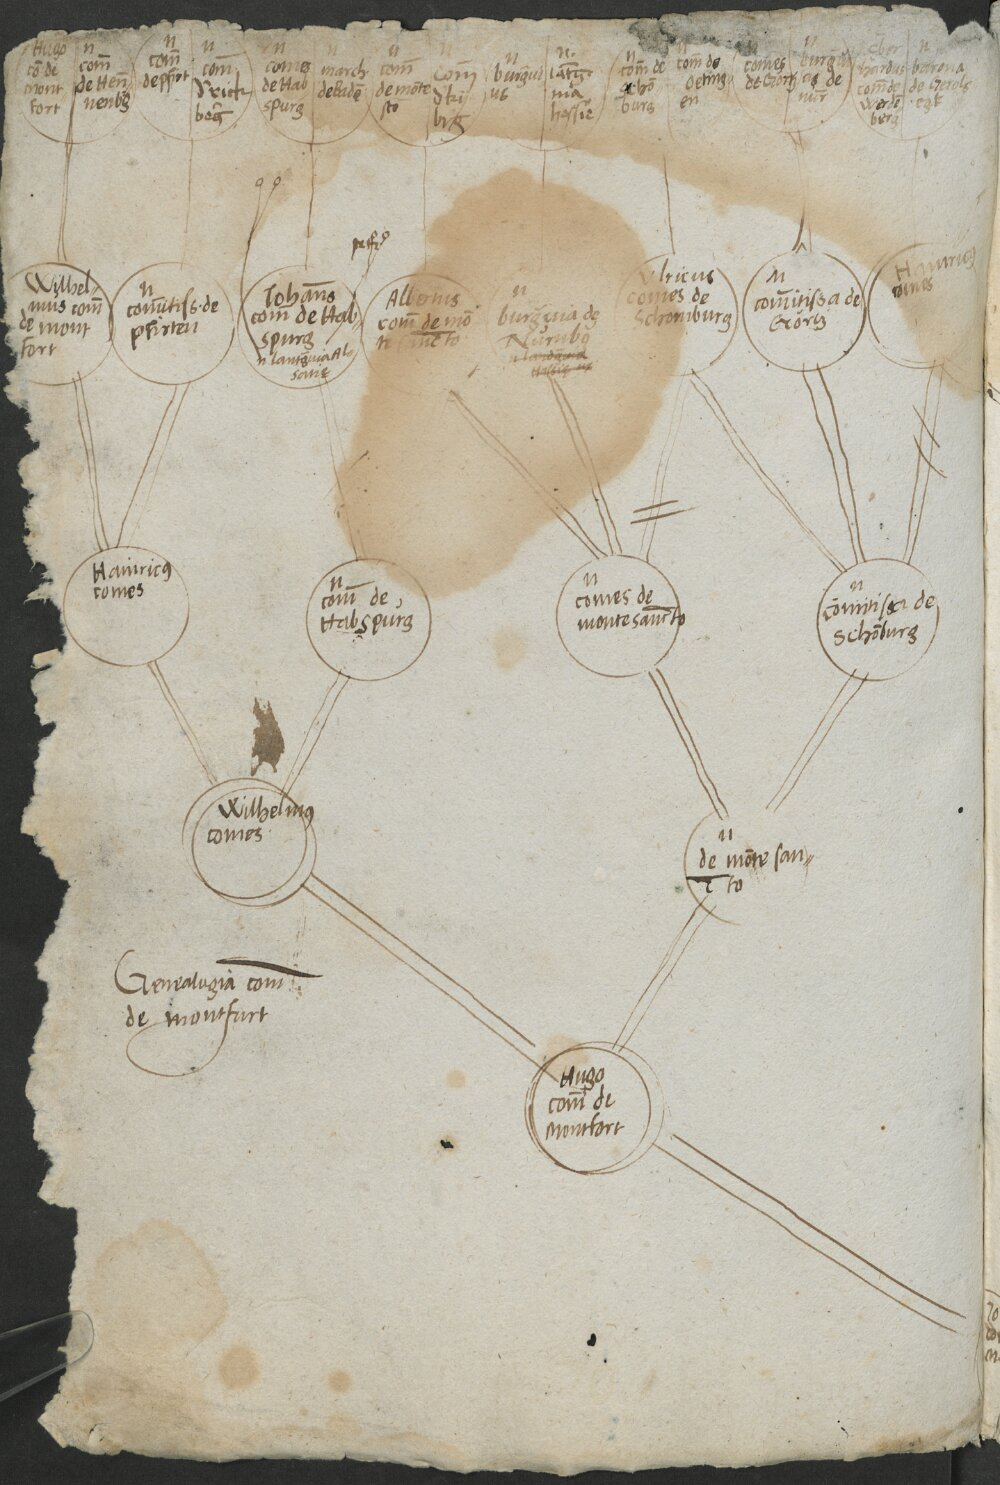 Hugo
cō de
mont
fort
n
com̄
de Hen̄
nenbg
n
com̄
de pfirt
n
com̄
n
comes
de Hab
spurg
n
march
de badē
n
com̄
de mōte
scto
n
com̄
n
burgᵍuᵍ
us
n
lātg
uia
hassie
n
com̄ de
schō
burg
n
com̄ de
oeting
en
n
comes
de Görtz
n
de
nūr
Eber
hardus
com de
werdē
berg
n
barona
de Gerols
egk
Wilhel
mus com̄
de mont
fort
n
comitiss· de
pfirten
Johan̄s
com̄ de Hab
spurg
n lantgᵘia Al
satie
pfr
Albertus
com̄ de mō
te sancto
n
burgᵍuia de
Nūrnbg
Ulricus
comes de
Schomburg
n
comitissa de
Görtz
Hainricꝰ
comes
Hainricꝰ
comes
n
com̄ de
Habspurg
n
comes de
monte sancto
n
comitissa de
Schōburg
Wilhelmꝰ
comes
n
de mōte san
c to
Genealogia com̄
de montfort
Hugo
com̄ de
Montfort